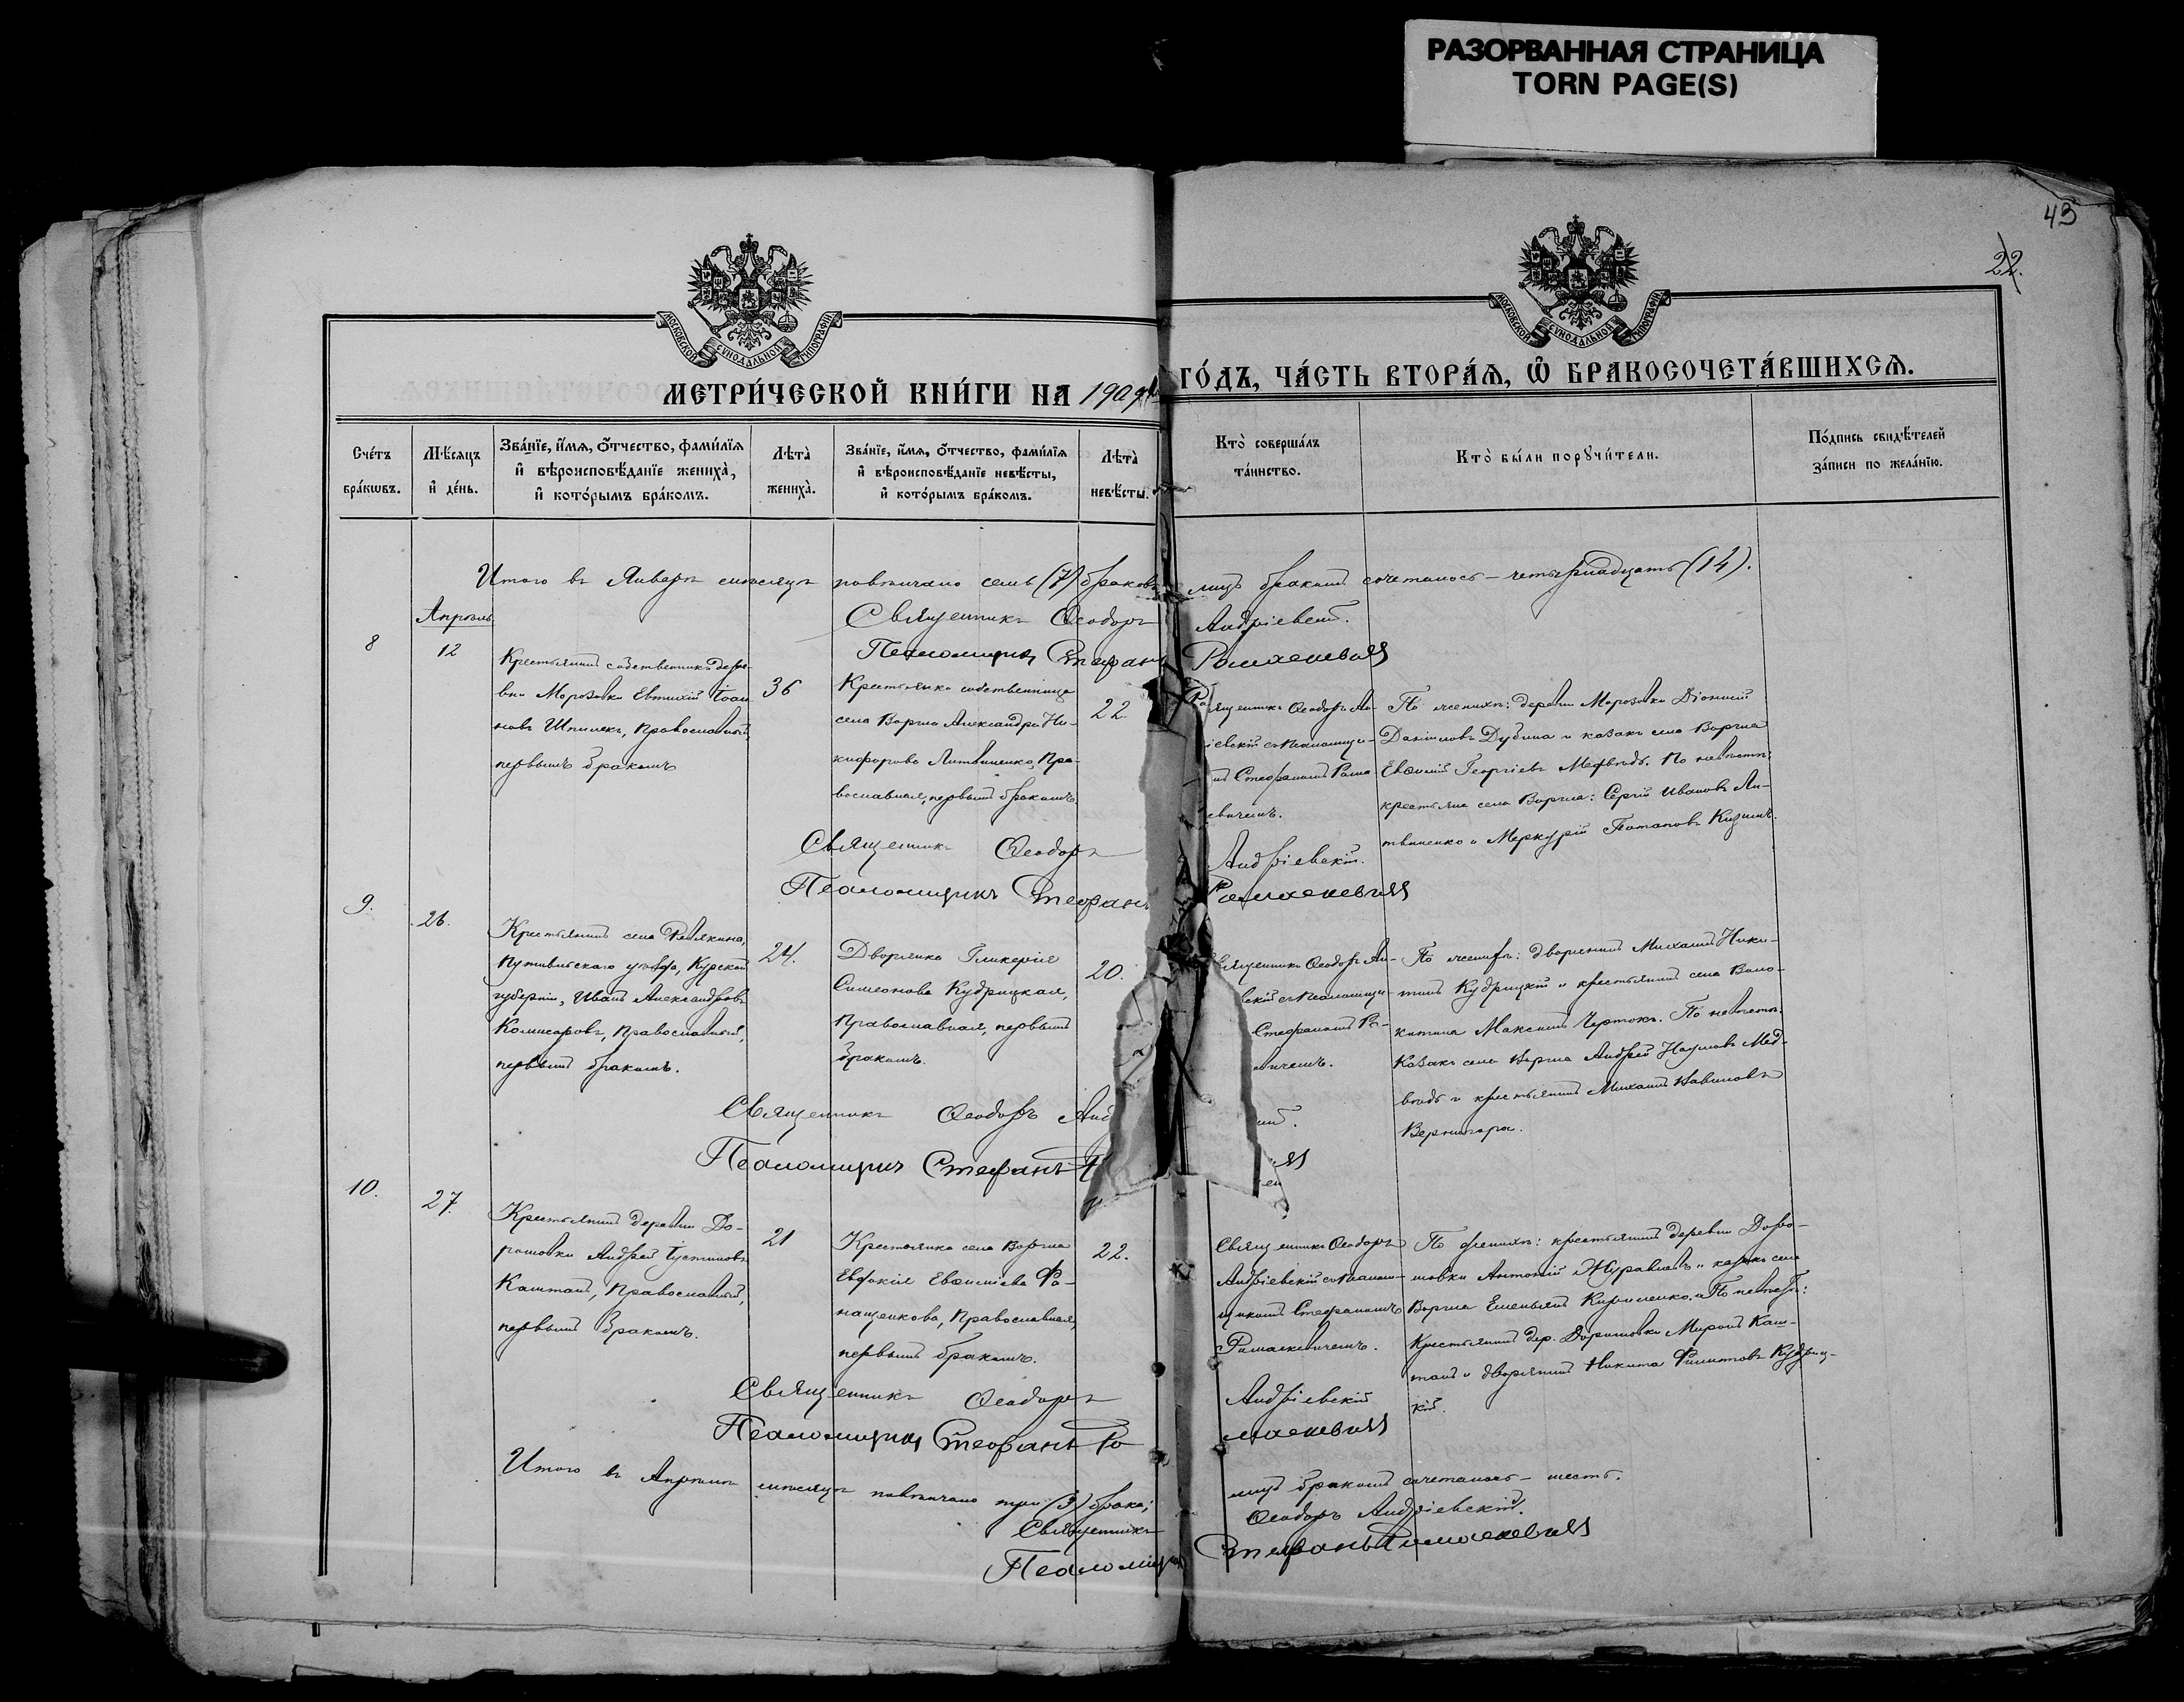 РАЗОРВАННАЯ СТРАНИЦА
TORN PAGE(S)
43
22.
МОСКОВСКОЙ СѴНОДАЛЬНОЙ ТИПОГРАФІИ
МОСКОВСКОЙ СѴНОДАЛЬНОЙ ТИПОГРАФІИ
МЕТРИ́ЧЕСКОЙ КНИ́ГИ НА 1909 ГО́ДЪ, ЧА́СТЬ ВТОРА́Я, Ѡ҆ БРАКОСОЧЕТА́ВШИХСѦ.
Сче́тъ бра́кѡвъ.
Мѣ́сяцъ и҆ де́нь.
Зва́нїе, и҆́мѧ, ѻ҆́тчество, фами́лїѧ и҆ вѣроисповѣ́данїе жениха̀, и҆ кото́рымъ бра́комъ.
Лѣта̀ жениха̀.
Зва́нїе, и҆́мѧ, ѻ҆́тчество, фами́лїѧ и҆ вѣроисповѣ́данїе невѣ́сты, и҆ кото́рымъ бра́комъ.
Лѣта̀ невѣ́сты.
Кто̀ соверша́лъ та́инство.
Кто̀ бы́ли порꙋчи́тели.
По́дпись свидѣ́телей за́писи по жела́нїю.
Итого въ Январѣ мѣсяцѣ повѣнчано семь (7) браковъ лицъ бракомъ сочеталось – четырнадцать (14).
Священникъ Ѳеодоръ Андріевскій.
Псаломщикъ Стефанъ Ромаскевичъ
Апрѣль
8
12
Крестьянинъ собственникъ дере-
вни Морозовки Евтихій Іоан-
новъ Шпилекъ, Православный,
первымъ бракомъ
36
Крестьянка собственница
села Воргла Александра Ни-
кифорова Литвиненко, Пра-
вославная, первымъ бракомъ.
22.
Священникъ Ѳеодоръ Ан-
іевскій съ Псаломщи-
Стефаномъ Рома
евичемъ.
По женихѣ: деревни Морозовки Діонисій
Даниловъ Дубина и казакъ села Воргла
Евѳимій Георгіевъ Медвѣдь. По невѣстѣ:
крестьяне села Воргла: Сергій Ивановъ Ли-
твиненко и Меркурій Потаповъ
Священникъ Ѳеодоръ Андріевскій.
Псаломщикъ Стефанъ Ромаскевичъ
9.
26.
Крестьянинъ села
Путивльскаго уѣзда, Курской
губерніи, Иванъ Александровъ
Комисаровъ, Православный,
первымъ бракомъ.
24.
Дворянка Гликерія
Симеонова Кудрицкая,
Православная, первымъ
бракомъ.
20.
Священникъ Ѳеодоръ Ан-
вскій съ Псаломщи-
Стефаномъ Ро-
ичемъ.
По женихѣ: дворянинъ Михаилъ Ники-
тинъ Кудрицкій и крестьянинъ села Воло-
китина Максимъ Чертокъ. По невѣстѣ:
Казакъ села Воргла Андрей Наумовъ Мед-
вѣдь и крестьянинъ Михаилъ Савиновъ
Вернигора.
Священникъ Ѳеодоръ Анд
Псаломщикъ Стефанъ
10.
27.
Крестьянинъ деревни До-
рошовки Андрей Іустиновъ
Каштанъ, Православный,
первымъ бракомъ.
21
Крестьянка села Воргла
Евдокія Евѳиміева
Православная,
первымъ бракомъ.
22.
Священникъ Ѳеодоръ
Андріевскій съ Псалом-
щикомъ Стефаномъ
Ромаскевичемъ.
По женихѣ: крестьянинъ деревни Доро-
шовки Антоній Журавль и казакъ села
Воргла Емельянъ Кириленко. По невѣстѣ:
Крестьянинъ дер. Дорошовки Миронъ Каш-
танъ и дворянинъ Никита Филиповъ Кудриц-
кій.
Священникъ Ѳеодоръ Андріевскій
Псаломщикъ Стефанъ Ромаскевичъ
Итого въ Апрѣлѣ мѣсяцѣ повѣнчано три (3) брака; лицъ бракомъ сочеталось – шесть.
Священникъ Ѳеодоръ Андріевскій.
Псаломщикъ Стефанъ Ромаскевичъ